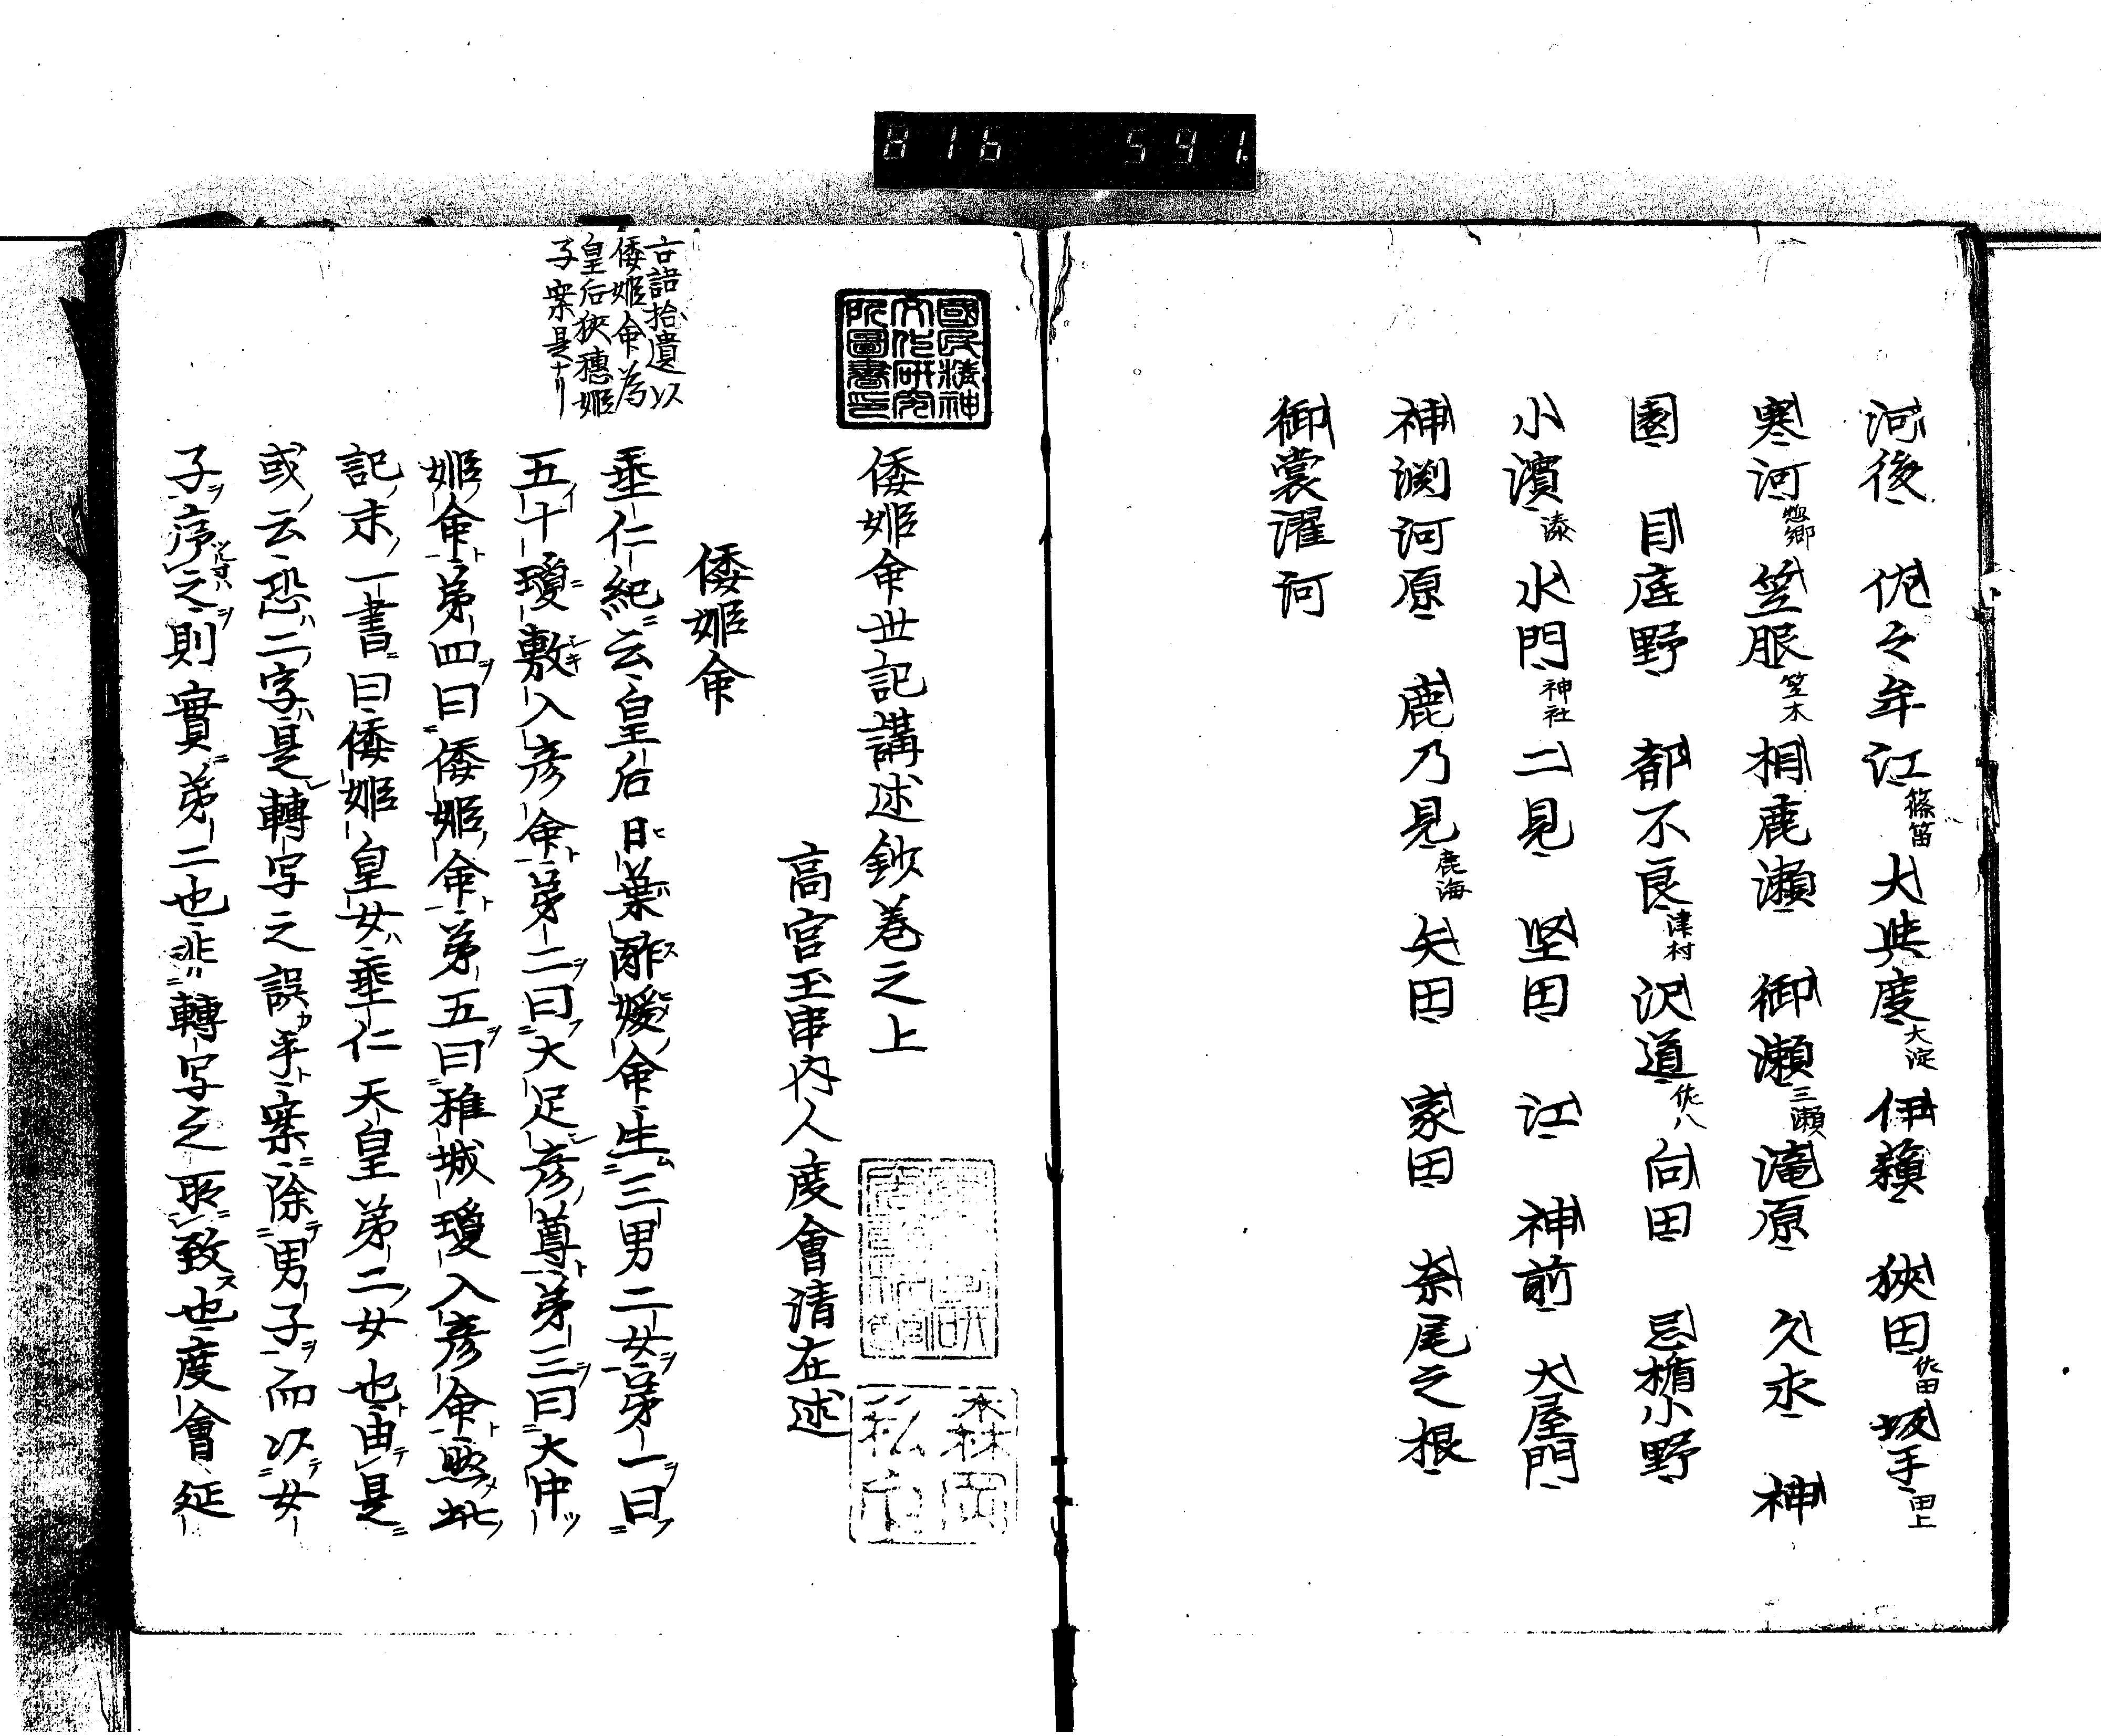 816 591.
河後 佐々牟江篠笛 大與度大淀 伊蘓 狹田佐田 坂手田上
寒河惣郷 笠服笠木 相鹿瀬 御瀬三瀬 滝原 久求 神
園 目庭野 都不良津村 沢道佐八 向田 忌楯小野
小濱湊 水門神社 二見 堅田 江 神前 大屋門
神渕河原 鹿乃見鹿海 矢田 家田 奈尾之根
御裳濯河
國民精神
文化研究
所圖書印
倭姫命世記講述鈔巻之上
高宮玉串内人度會清在述
倭姫命
垂仁紀ニ云皇后日葉酢媛命生三男二女ヲ第一ヲ曰フ
五十瓊敷入彦命ト第二ヲ曰フ大足彦尊ト第三ヲ曰大中ツ
姫命ト第四ヲ曰倭姫命ト第五ヲ曰稚城瓊入彦命ト然此ノ
記ノ末ノ一書ニ曰倭姫皇女ハ垂仁天皇第二ノ女也ト由テ是ニ
或ノ云恐ハ二ノ字ハ是轉写之誤カ乎ト案ニ除テ男子ヲ而以テ女
子ヲ序之ヲ則實ニ第二也非ハ轉写之所致ス也度會延
古語拾遺以
倭姫命為
皇后狹穗姫
子案是ナリ
森岡